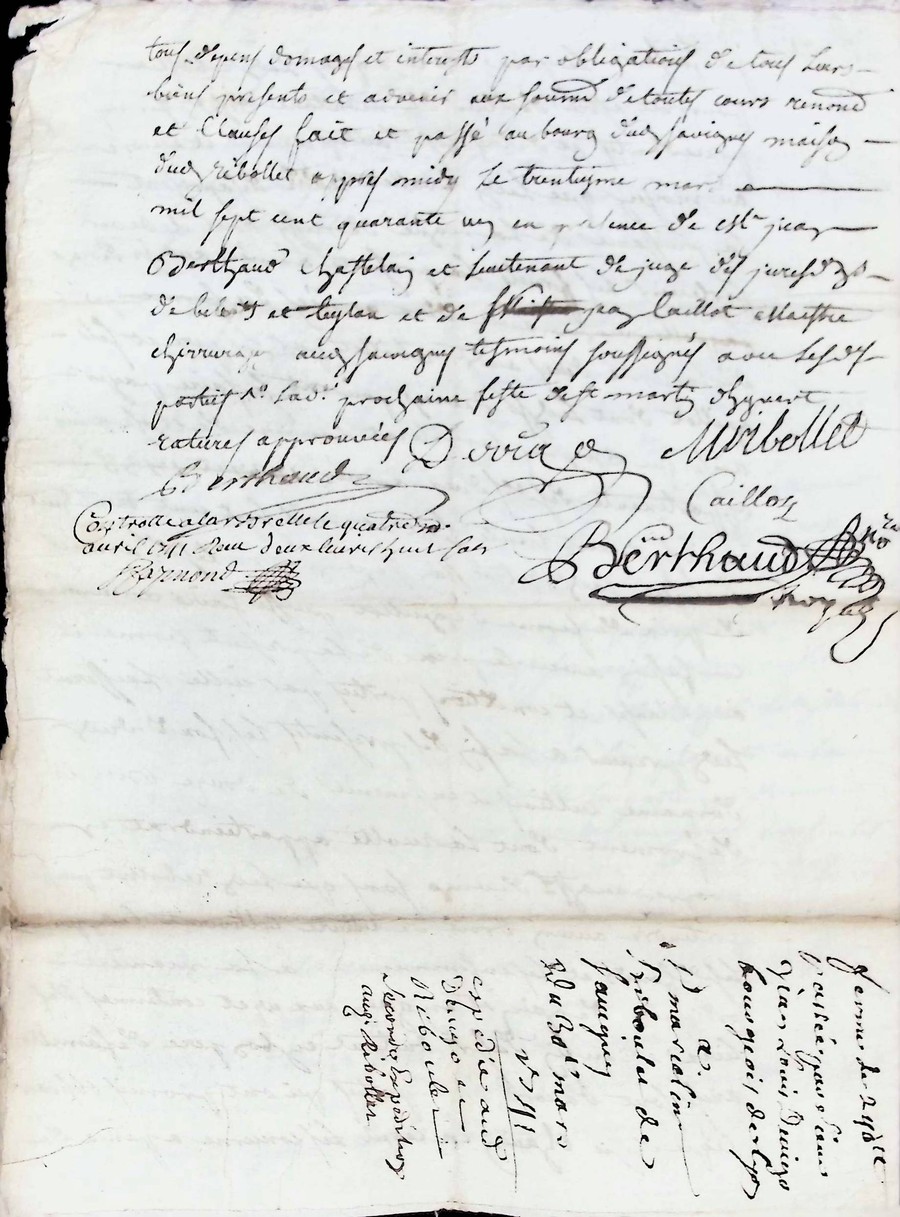 tous depens domages et interests par obligations de tous Leurs
biens presents et advenir aux soumd de toutes cours renond
et Clauses fait et passé au bourg dud savigney maison
dud ribollet appres midy Le trentiesme mars
mil sept cent quarante un en presence de Mr jean
Berthaud Chastelain et lieutenant de juge des juresd
de et et de jean Caillot Maistre
chirurgien aud savigney tesmoins soussignés avec Lesd
parties prochaine feste de st martin
ratures approuvées Duvigo M ribollet
Berthaud
Caillot
Controllé a Larbrelle le quatre
avril 1741 Reçu deux livres huit sols
Berthaud nore
Raymond
royal
ferme de 2
passée par sieur
jean Louis Duvigo
bourgeois de Lyon
a
Sr marcelin
Triboulet de
Sauvgney
du 30e mars
1741
expedié aud
Duvigo et
Riboulet
Seconde Expedition
aud Riboller